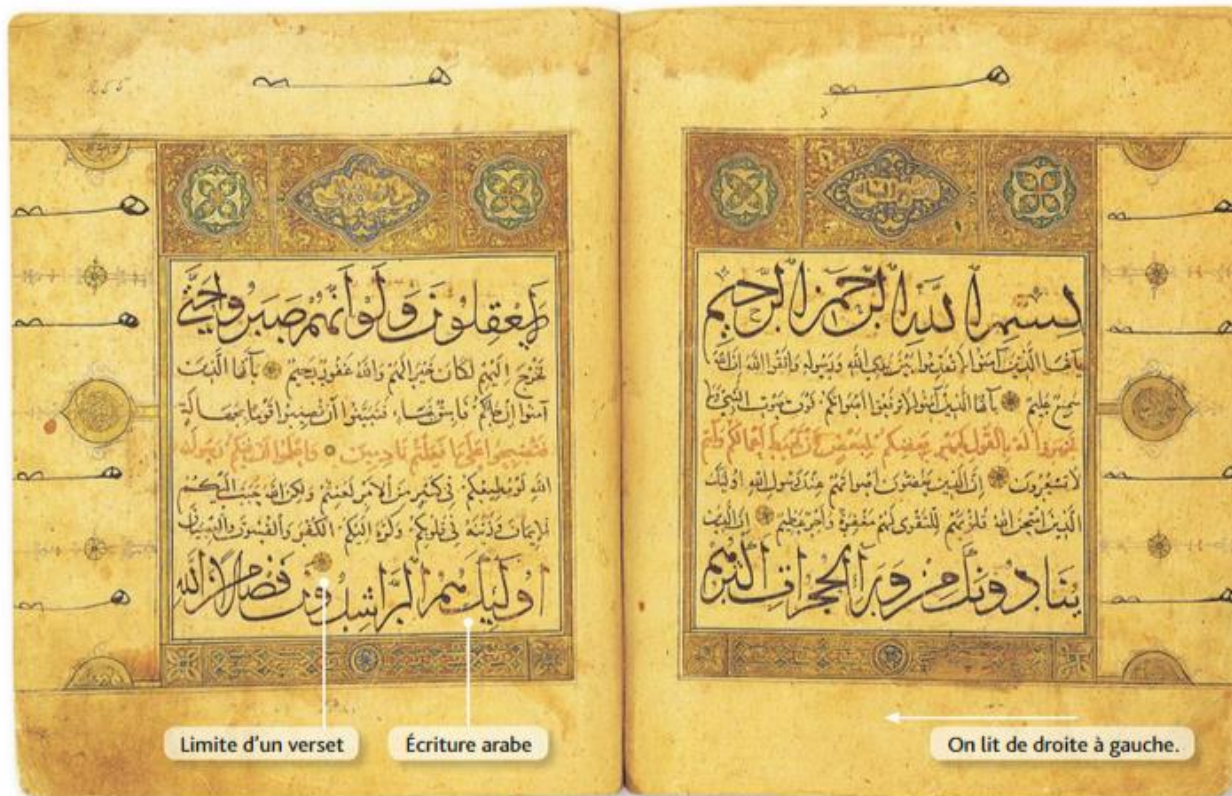 بسم الله الرحمن الرحيم
يا أيها الذين آمنوا لا تقدموا بين يدي الله ورسوله واتقوا الله إن الله
سميع عليم يا أيها الذين آمنوا لا ترفعوا أصواتكم فوق صوت النبي ولا
تجهروا له بالقول كجهر بعضكم لبعض أن تحبط أعمالكم وأنتم
لا تشعرون إن الذين يغضون أصواتهم عند رسول الله أولئك
الذين امتحن الله قلوبهم للتقوى لهم مغفرة وأجر عظيم إن الذين
ينادونك من وراء الحجرات أكثرهم
لا يعقلون ولو أنهم صبروا حتى
تخرج إليهم لكان خيرا لهم والله غفور رحيم يا أيها الذين
آمنوا إن جاءكم فاسق بنبإ فتبينوا أن تصيبوا قوما بجهالة
فتصبحوا على ما فعلتم نادمين واعلموا أن فيكم رسول
الله لو يطيعكم في كثير من الأمر لعنتم ولكن الله حبب إليكم
الإيمان وزينه في قلوبكم وكره إليكم الكفر والفسوق والعصيان
أولئك هم الراشدون فضلا من الله
Limite d'un verset
Écriture arabe
On lit de droite à gauche.